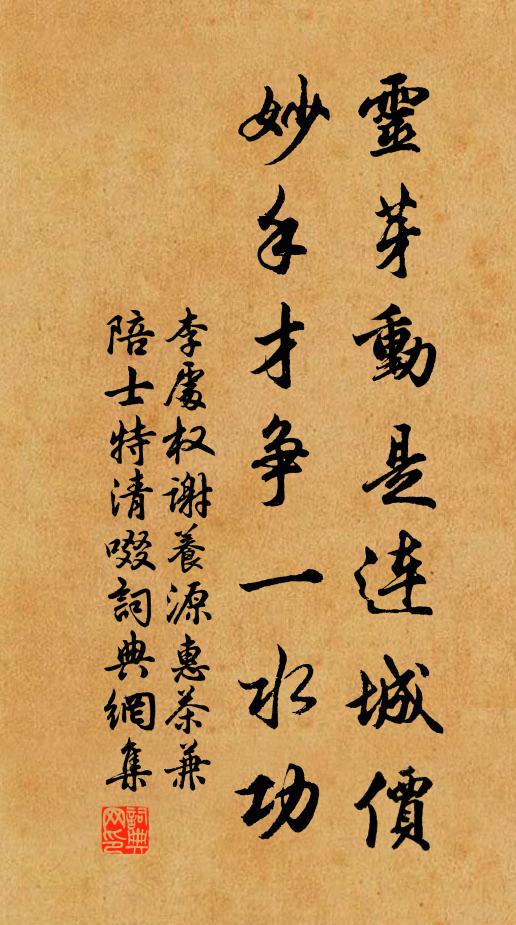 靈芽動是连城價
妙手才争一水功
李處权谢養源惠茶兼
陪士特清啜詞典網集
詞典网印